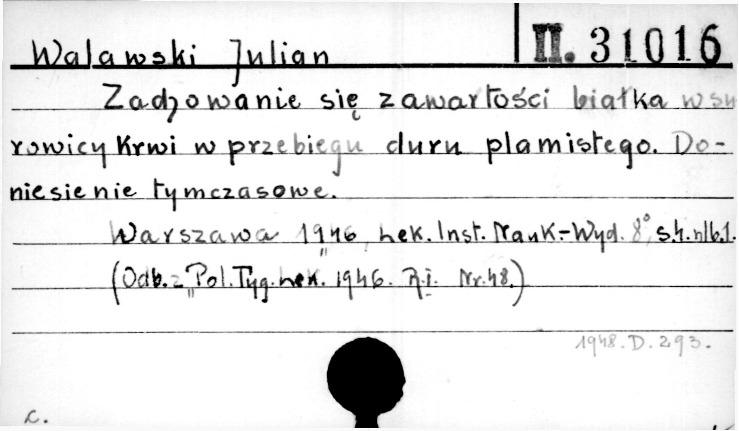 Walawski Julian
II. 31016
Zachowanie się zawartości białka w su
rowicy krwi w przebiegu duru plamistego. Do-
niesienie tymczasowe.
Warszawa 1946, Lek. Inst. Nauk.-Wyd. 8°, s. 4. nlb. 1.
(Odb. z „Pol. Tyg. Lek. 1946. R. I. Nr. 48.)
1948. D. 293.
c.